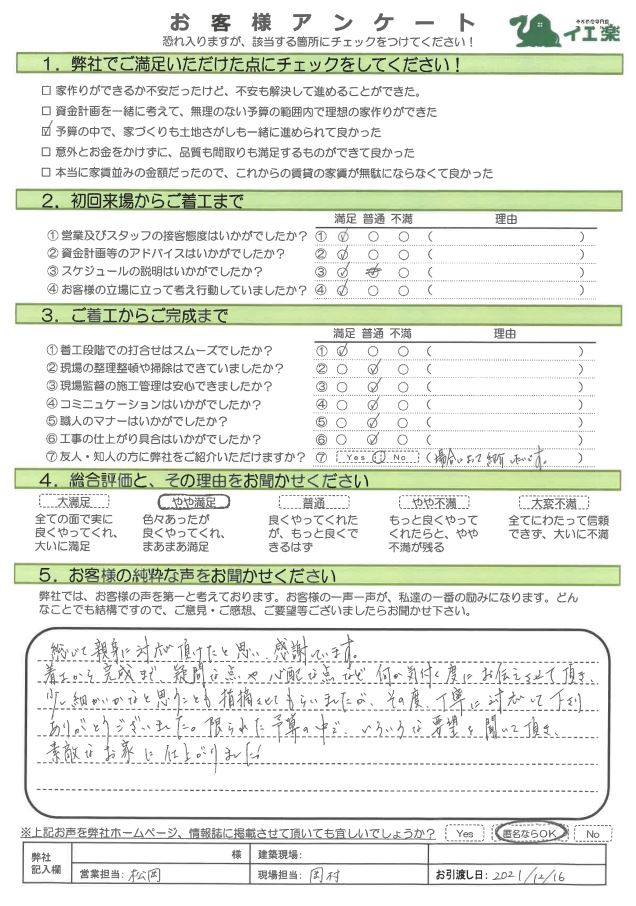 お客様アンケート
恐れ入りますが、該当する箇所にチェックをつけてください!
イエ楽
1. 弊社でご満足いただけた点にチェックをしてください!
□ 家作りができるか不安だったけど、不安も解決して進めることができた。
□ 資金計画を一緒に考えて、無理のない予算の範囲内で理想の家作りができた
☑ 予算の中で、家づくりも土地さがしも一緒に進められて良かった
□ 意外とお金をかけずに、品質も間取りも満足するものができて良かった
□ 本当に家賃並みの金額だったので、これからの賃貸の家賃が無駄にならなくて良かった
2. 初回来場からご着工まで
満足 普通 不満 理由
①営業及びスタッフの接客態度はいかがでしたか? ① ( )
②資金計画等のアドバイスはいかがでしたか? ② ( )
③スケジュールの説明はいかがでしたか? ③ ( )
④お客様の立場に立って考え行動していましたか? ④ ( )
3. ご着工からご完成まで
満足 普通 不満 理由
①着工段階での打合せはスムーズでしたか? ① ( )
②現場の整理整頓や掃除はできていましたか? ② ( )
③現場監督の施工管理は安心できましたか? ③ ( )
④コミニュケーションはいかがでしたか? ④ ( )
⑤職人のマナーはいかがでしたか? ⑤ ( )
⑥工事の仕上がり具合はいかがでしたか? ⑥ ( )
⑦友人・知人の方に弊社をご紹介いただけますか? ⑦ Yes No (場合によって紹介したいです。)
4. 総合評価と、その理由をお聞かせください
大満足 やや満足 普通 やや不満 大変不満
全ての面で実に 色々あったが 良くやってくれた もっと良くやって 全てにわたって信頼
良くやってくれ、 良くやってくれ、 が、もっと良くで くれたらと、やや できず、大いに不満
大いに満足 まあまあ満足 きるはず 不満が残る
5. お客様の純粋な声をお聞かせください
弊社では、お客様の声を第一と考えております。お客様の一声一声が、私達の一番の励みになります。どん
なことでも結構ですので、ご意見・ご感想、ご要望等ございましたらお聞かせ下さい。
総じて親身に対応頂けたと思い、感謝しています。
着工から完成まで、疑問な点や心配な点など、何か気付く度にお伝えさせて頂き、
少し細かいかなと思うことも指摘させてもらいましたが、その度、丁寧に対応して下さり
ありがとうございました。限られた予算の中で、いろいろな要望を聞いて頂き、
素敵なお家に仕上がりました!
※上記お声を弊社ホームページ、情報誌に掲載させて頂いても宜しいでしょうか? Yes 匿名ならOK No
弊社記入欄 様 建築現場:
営業担当: 松岡 現場担当: 岡村 お引渡し日: 2021/12/16